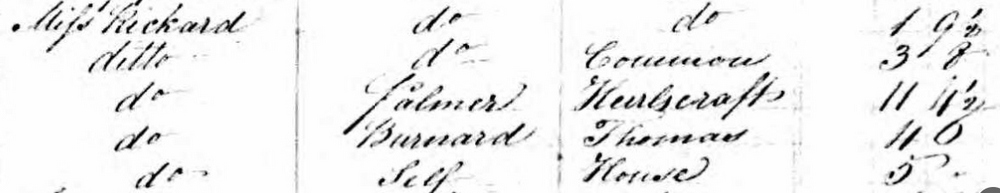 Miss Rickard do do 1 9½
ditto do Common 3 8
do Palmer Hurlscraft 11 4½
do Burnard Thomas 4 0
do Self House 5 -